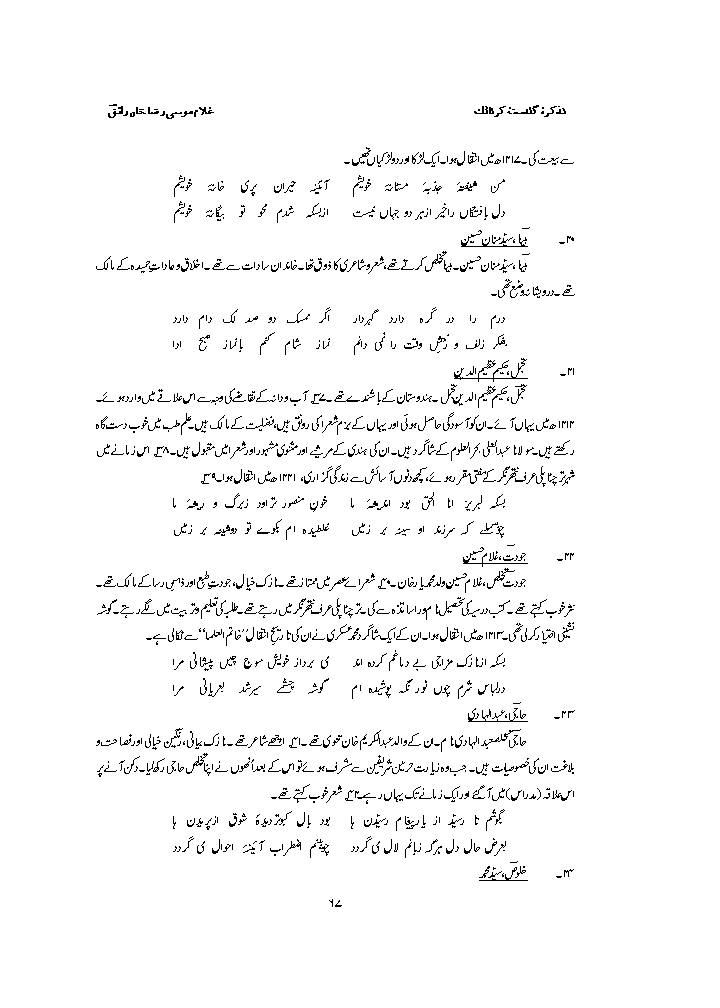 تذکرۂ گلدستۂ کرناٹک غلام موسیٰ رضا خاں رائقؔ
سے بیعت کی۔ ۱۲۱۷ھ میں انتقال ہوا۔ ایک لڑکا اور دو لڑکیاں تھیں۔
من شیفتۂ جذبۂ مستانۂ خویشم آئینۂ حیران پری خانۂ خویشم
دل بافتگاں را خبر از ہر دو جہاں نیست از بسکہ شدم محو تو بیگانۂ خویشم
۲۰۔ بینا، سیّد منان حسین
بینا، سیّد منان حسین۔ بینا تخلص کرتے تھے، شعر و شاعری کا ذوق تھا۔ خاندان سادات سے تھے۔ اخلاق و عادات حمیدہ کے مالک
تھے۔ درویشانہ وضع تھی۔
درم را در گرہ دارد گہردار اگر ممسک دو صد لک دام دارد
بفکر زلف و رخش وقت را نمی دانم نماز شام کنم بانماز صبح ادا
۲۱۔ تجمّل، حکیم عظیم الدین
تجمّل، حکیم عظیم الدین تجمّل۔ ہندوستان کے باشندے تھے۔ ۳۷؎ آب و دانہ کے تقاضے کی وجہ سے اس علاقے میں وارد ہوئے۔
۱۲۱۲ھ میں یہاں آئے۔ ان کو آسودگی حاصل ہوئی اور یہاں کے بزم شعرا کی رونق ہیں، فضلیت کے مالک ہیں۔ علم طب میں خوب دست گاہ
رکھتے ہیں۔ مولانا عبدالعلی بحر العلوم کے شاگرد ہیں۔ ان کی ہندی کے مرثیے اور مثنوی مشہور اور شعرا میں مقبول ہیں۔ ۳۸؎ اس زمانے میں
شہر ترچناپلی عرف نتھر نگر کے مفتی مقرر ہوئے، کچھ دنوں آسائش سے زندگی گزاری، ۱۲۲۱ھ میں انتقال ہوا۔ ۳۹؎
بسکہ لبریز انا الحق بود اندیشۂ ما خون منصور تراود ز برگ و ریشۂ ما
چو بسملے کہ سرزند او سینہ بر زمیں غلطیدہ ام بکوے تو دوشینہ بر زمیں
۲۲۔ جودتؔ، غلام حسین
جودتؔ تخلص، غلام حسین ولد محمد یار خان۔ ۴۰؎ شعراے عصر میں ممتاز تھے۔ نازک خیال، جودت طبع اور ذہن رسا کے مالک تھے۔
نثر خوب کہتے تھے۔ کتب درسیہ کی تحصیل نامور اساتذہ سے کی۔ ترچناپلی عرف نتھر نگر میں رہتے تھے۔ طلبہ کی تعلیم و تربیت میں لگے رہتے۔ گوشہ
نشینی اختیار کر لی تھی۔ ۱۲۱۳ھ میں انتقال ہوا۔ ان کے ایک شاگرد محمد عسکری نے ان کی تاریخ انتقال ’’خاتم العلما‘‘ سے نکالی ہے۔
بسکہ از نازک مزاجی بے دماغم کردہ اند می برداز خویش موج چین پیشانی مرا
درلباس شرم چوں نور نگہ پوشیدہ ام گوشہ چشمے میرشد بعریانی مرا
۲۳۔ حاجیؔ، عبدالہادی
حاجیؔ تخلص عبدالہادی نام۔ ان کے والد عبدالکریم خان نحوی تھے۔ ۴۱؎ اچھے شاعر تھے۔ نازک بیانی، رنگین خیالی اور فصاحت و
بلاغت ان کی خصوصیات ہیں۔ جب وہ زیارت حرمین شریفین سے مشرف ہوئے تو اس کے بعد انھوں نے اپنا تخلص حاجی رکھ لیا۔ دکن آنے پر
اس علاقہ (مدراس) میں آگئے اور ایک زمانے تک یہاں رہے۔ ۴۲؎ شعر خوب کہتے تھے۔
بگوشم تا رسید از یار پیغام رسیدن ہا بود بال کبوتر دیدۂ شوق از پریدن ہا
بعرض حال دل ہرگہ زبانم لال می گردد چو بینم اضطراب آئینۂ احوال می گردد
۲۴۔ خلوصؔ، سیّد محمد
۶۷